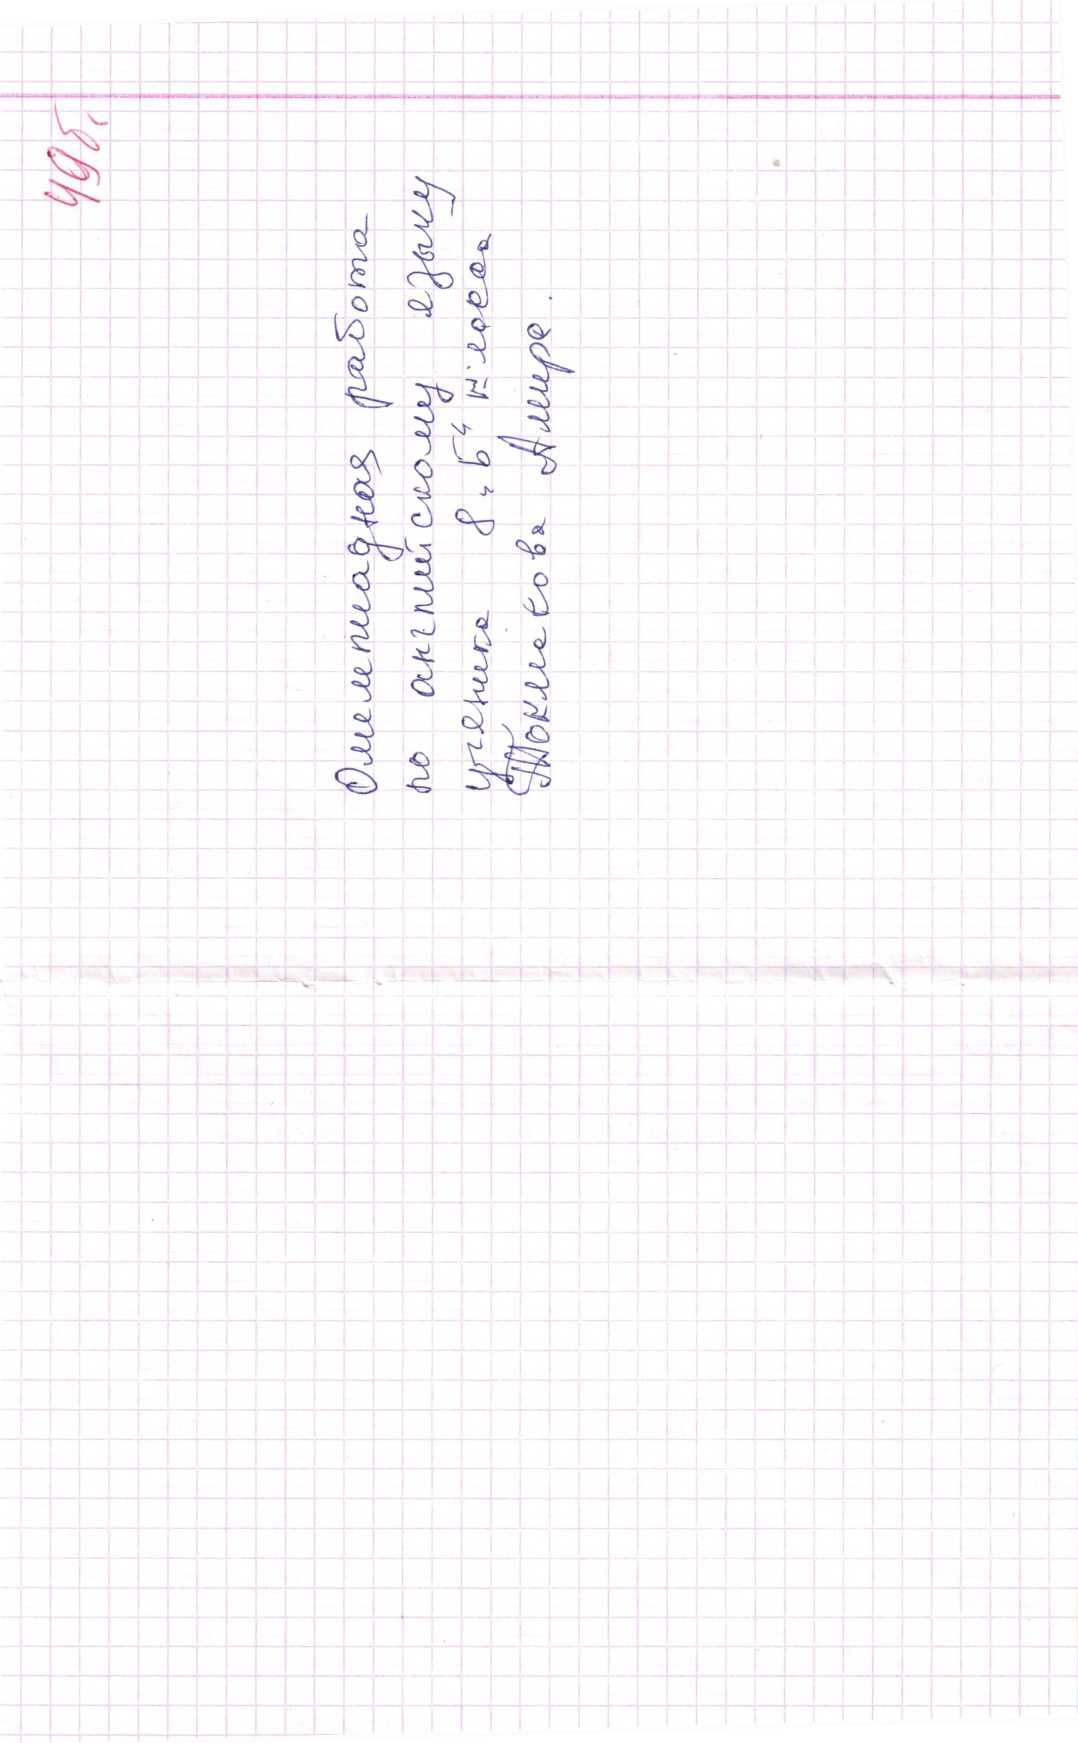 49 б.
Олимпиадная работа
по английскому языку
ученика 8 „Б“ класса
Токмакова Амира.